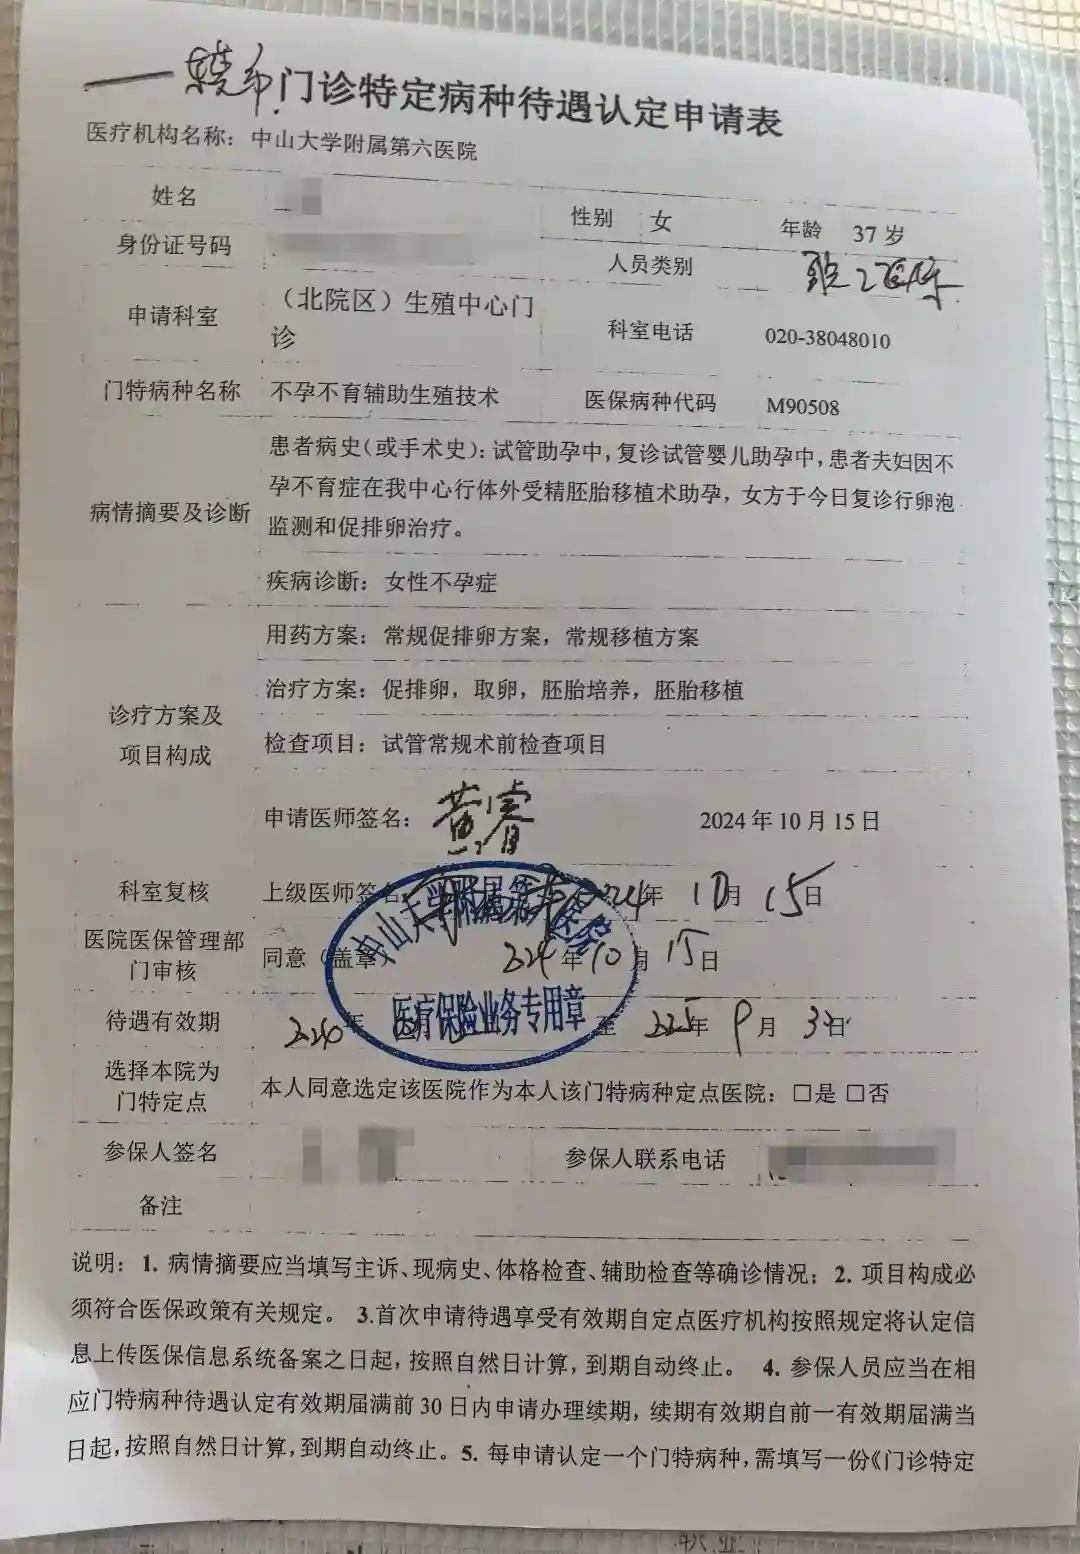 门诊特定病种待遇认定申请表
医疗机构名称：中山大学附属第六医院
姓名
性别 女 年龄 37 岁
身份证号码
人员类别
申请科室 （北院区）生殖中心门诊 科室电话 020-38048010
门特病种名称 不孕不育辅助生殖技术 医保病种代码 M90508
病情摘要及诊断
患者病史（或手术史）：试管助孕中，复诊试管婴儿助孕中，患者夫妇因不
孕不育症在我中心行体外受精胚胎移植术助孕，女方于今日复诊行卵泡
监测和促排卵治疗。
疾病诊断：女性不孕症
诊疗方案及
项目构成
用药方案：常规促排卵方案，常规移植方案
治疗方案：促排卵，取卵，胚胎培养，胚胎移植
检查项目：试管常规术前检查项目
申请医师签名：黄睿 2024 年 10 月 15 日
科室复核 上级医师签名 年 10 月 15 日
医院医保管理部
门审核
同意（盖章） 2024 年 10 月 15 日
中山大学附属第六医院
医疗保险业务专用章
待遇有效期 年 至 年 9 月 日
选择本院为
门特定点
本人同意选定该医院作为本人该门特病种定点医院：□是 □否
参保人签名 参保人联系电话
备注
说明：1. 病情摘要应当填写主诉、现病史、体格检查、辅助检查等确诊情况；2. 项目构成必
须符合医保政策有关规定。 3.首次申请待遇享受有效期自定点医疗机构按照规定将认定信
息上传医保信息系统备案之日起，按照自然日计算，到期自动终止。 4. 参保人员应当在相
应门特病种待遇认定有效期届满前 30 日内申请办理续期，续期有效期自前一有效期届满当
日起，按照自然日计算，到期自动终止。5. 每申请认定一个门特病种，需填写一份《门诊特定